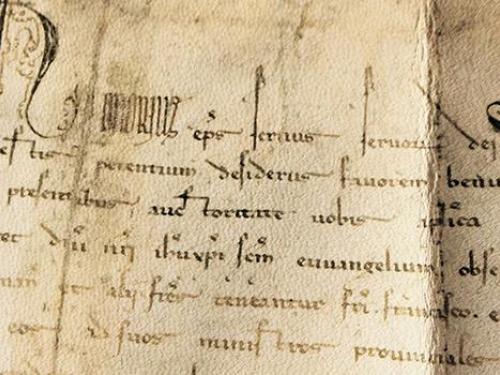 eps seruus seruorum dei
estis petentium desideriis fauorem beniu
presentibus, auctoritate uobis aplica
dni nri ihu xpi scm euuangelium obse
et alij fres teneantur fri. francisco. e
eos ad suos ministros prouinciales